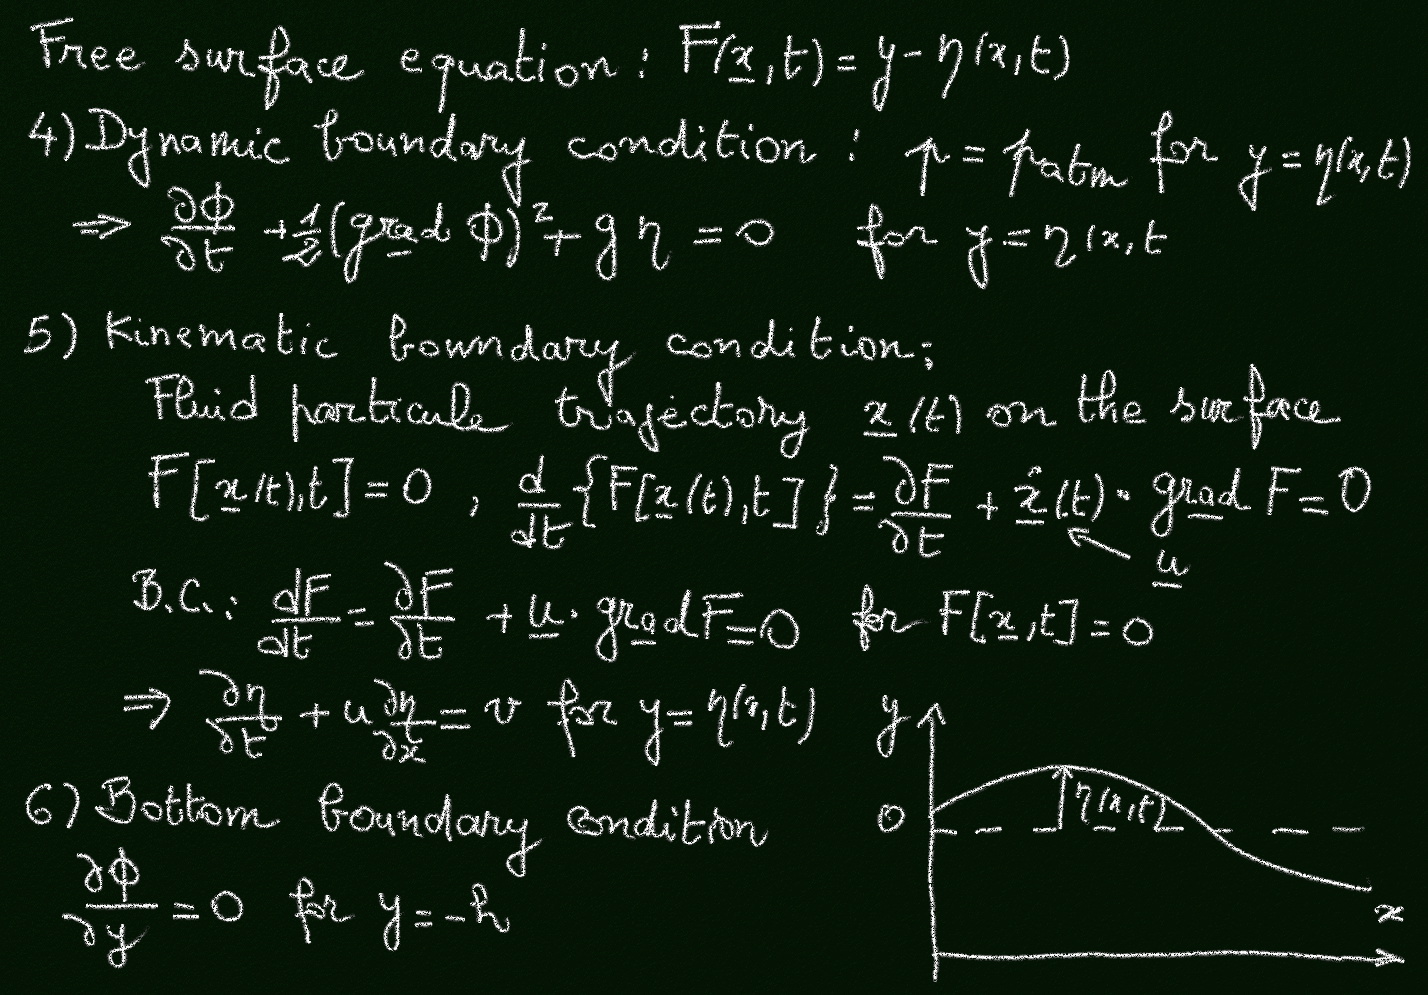 Free surface equation : F(x̲,t) = y - η(x,t)
4) Dynamic boundary condition : p = patm for y = η(x,t)
⇒ ∂ϕ/∂t + 1/2 (g̲r̲a̲d̲ ϕ)² + g η = 0 for y = η(x,t
5) Kinematic boundary condition;
Fluid particule trajectory x̲(t) on the surface
F[x̲(t),t] = 0 , d/dt {F[x̲(t),t]} = ∂F/∂t + ẋ̲(t) · g̲r̲a̲d̲ F = 0
u̲
B.C. : dF/dt = ∂F/∂t + u̲ · g̲r̲a̲d̲ F = 0 for F[x̲,t] = 0
⇒ ∂η/∂t + u ∂η/∂x = v for y = η(x,t)
6) Bottom boundary condition
∂ϕ/∂y = 0 for y = -h
y
0
η(x,t)
x